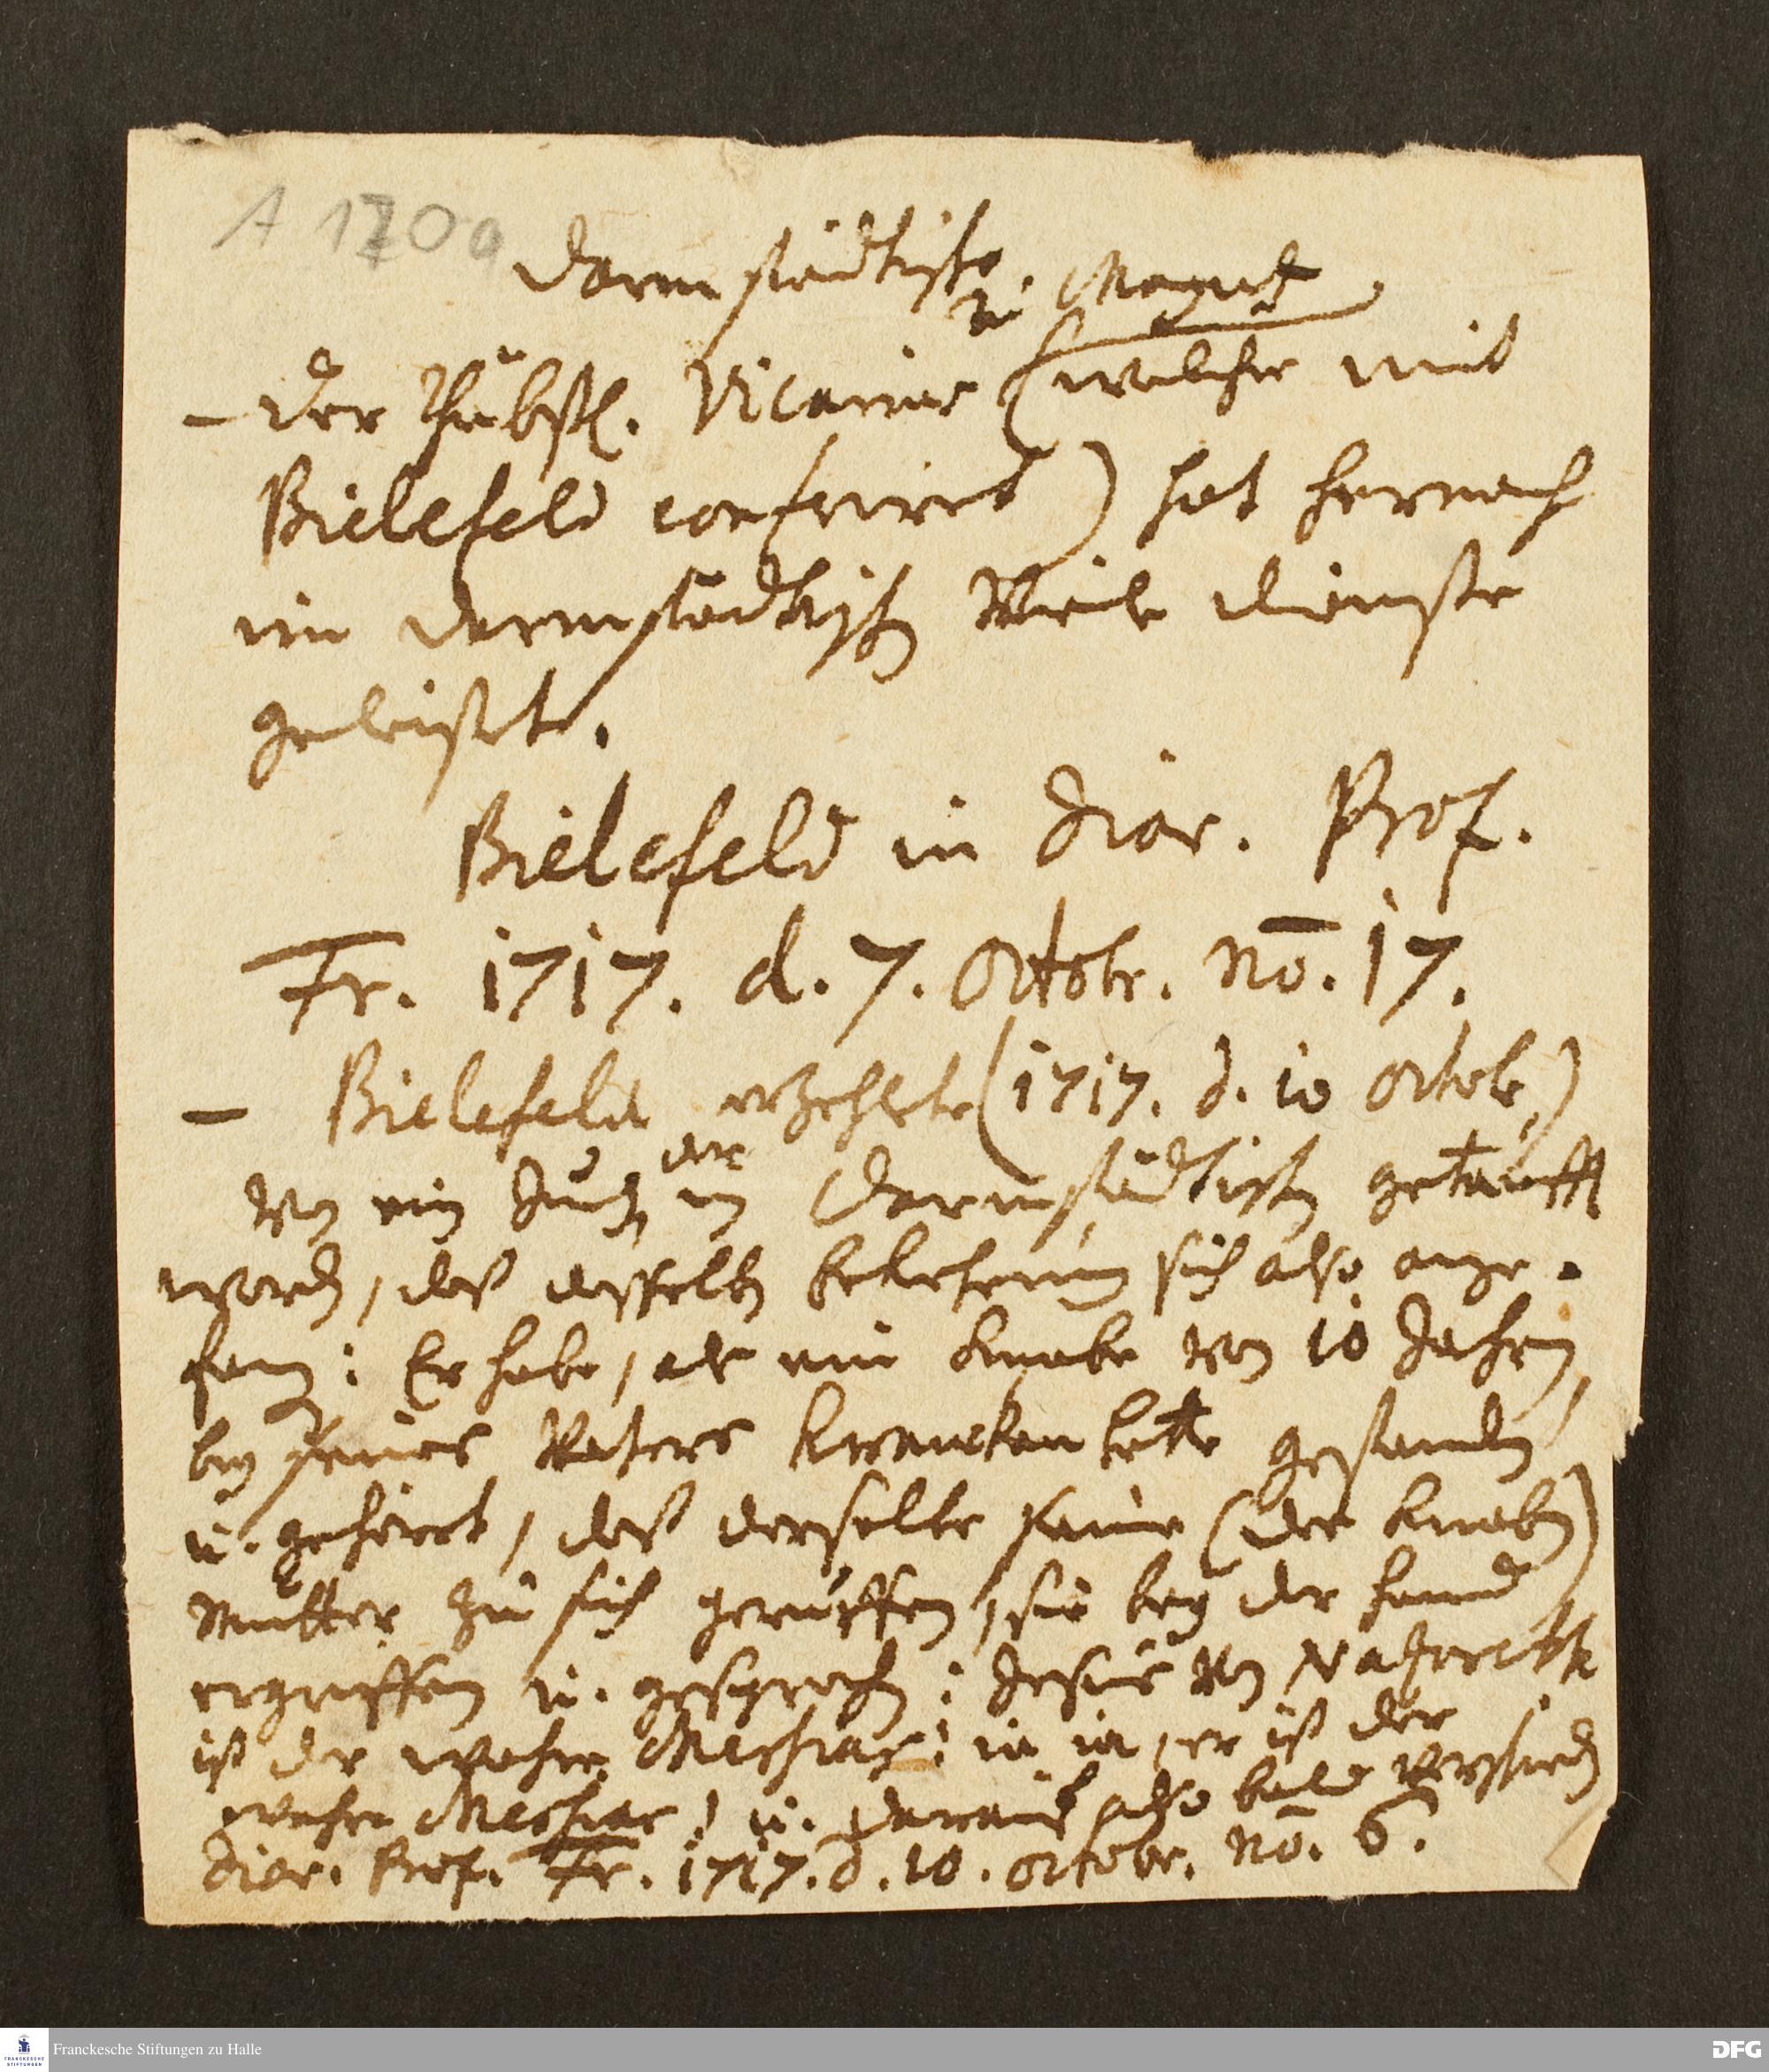 A 170a
Darmstädtische.
zu Maynz
– der Päbstl. Vicarius (welcher mit
Bielefeld conferiret) hat hernach
im Darmstädtisch viele dienste
geleistet.
Bielefeld in Diar. Prof.
Fr. 1717. d. 7. Octobr. No. 17.
– Bielefeld erzehlete (1717. d. 10 Octobr.)
von ein Juden, der
im Darmstädtischen getaufft
worden, daß desselben bekehrung sich also ange-
fangen: Er habe, als ein Knabe von 10 Jahren,
bey seines Vaters Krancken bette gestanden
u. gehöret, daß derselbe seine (des Knaben)
Mutter zu sich geruffen, sie bey der Hand
ergriffen u. gesprochen: Jesus von Nazareth
ist der wahre Messias; ja ja, er ist der
wahre Messias! u. darauf also bald verschieden
Diar. Prof. Fr. 1717. d. 10. Octobr. No. 6.
Franckesche Stiftungen zu Halle
FRANCKESCHE STIFTUNGEN
DFG